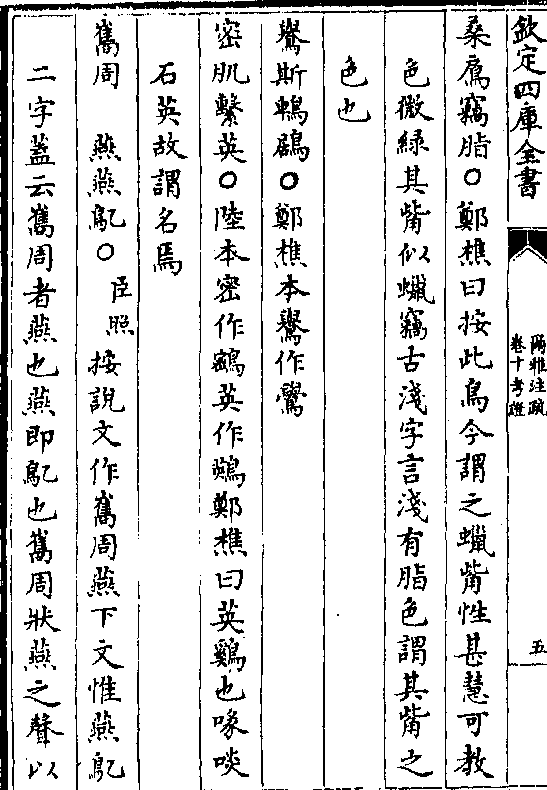 欽定四庫全書
爾雅注疏
卷十考證
五
桑鳸竊脂○鄭樵曰按此鳥今謂之蠟觜性甚慧可教
色微緑其觜似蠟竊古淺字言淺有脂色謂其觜之
色也
鷽斯鵯鶋○鄭樵本鷽作鸒
密肌繫英○陸本密作鶐英作鶧鄭樵曰英鷄也啄啖
石英故謂名焉
巂周　燕燕鳦○臣照按說文作巂周燕下文惟燕鳦
二字葢云巂周者燕也燕即鳦也巂周狀燕之聲以